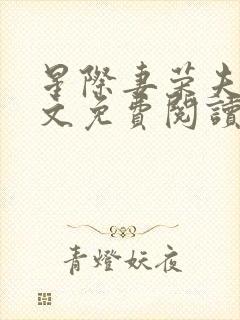 星際妻榮夫
文免費閱讀
青燈妖夜